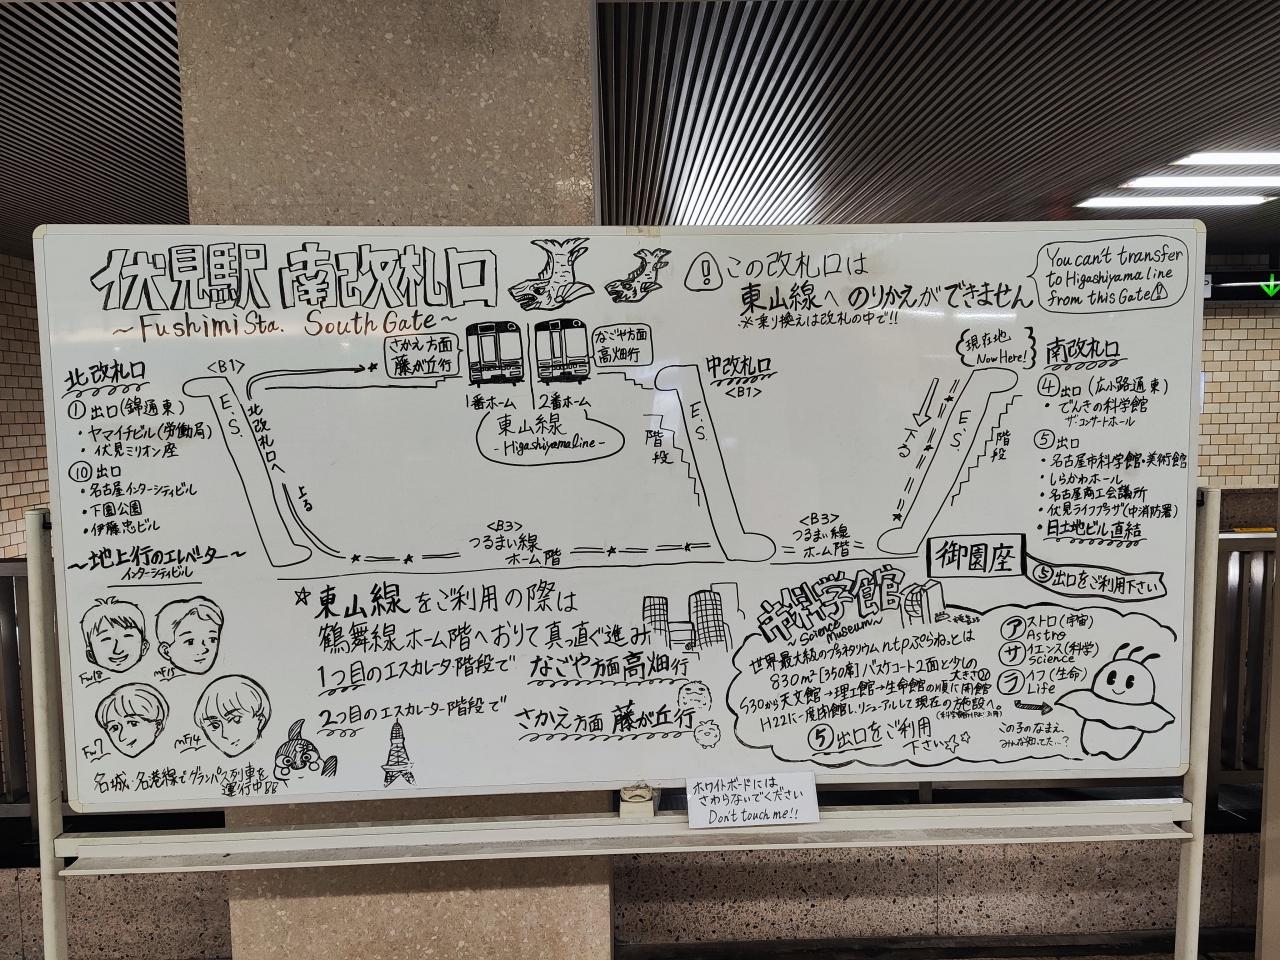 伏見駅 南改札口
~Fushimi Sta. South Gate~
この改札口は
東山線へ のりかえができません
※乗り換えは改札の中で!!
You can't transfer
to Higashiyama line
from this Gate
北改札口
① 出口(錦通東)
・ヤマイチビル(労働局)
・伏見ミリオン座
⑩ 出口
・名古屋インターシティビル
・下園公園
・伊藤忠ビル
~地上行のエレベーター~
インターシティビル
<B1>
E.S.
北改札口へ
上る
さかえ方面
藤が丘行
なごや方面
高畑行
1番ホーム
2番ホーム
東山線
-Higashiyama line-
中改札口
<B1>
階段
E.S.
<B3>
つるまい線
ホーム階
<B3>
つるまい線
ホーム階
下る
E.S.
階段
現在地
Now Here!
南改札口
④ 出口(広小路通東)
・でんきの科学館
ザ・コンサートホール
⑤ 出口
・名古屋市科学館・美術館
・しらかわホール
・名古屋商工会議所
・伏見ライフプラザ(中消防署)
・日土地ビル直結
御園座
⑤出口をご利用下さい
☆東山線をご利用の際は
鶴舞線ホーム階へおりて真っ直ぐ進み
1つ目のエスカレータ階段で なごや方面高畑行
2つ目のエスカレーター階段で さかえ方面 藤が丘行
Fw18
MF15
Fw7
MF14
名城・名港線でグランパス列車を
運行中
市科学館
~Science Museum~
世界最大級のプラネタリウムNTPぷらねっとは
830㎡[350席]バスケコート2面と少しの
大きさ
S30から天文館→理工館→生命館の順に開館
H22に一度閉館し、リニューアルして現在の方施設へ。
⑤出口をご利用
下さい☆☆
ア ストロ(宇宙)
Astro
サ イエンス(科学)
Science
ラ イフ(生命)
Life
この子のなまえ、
みんな知ってた…?
ホワイトボードには
さわらないでください
Don't touch me!!